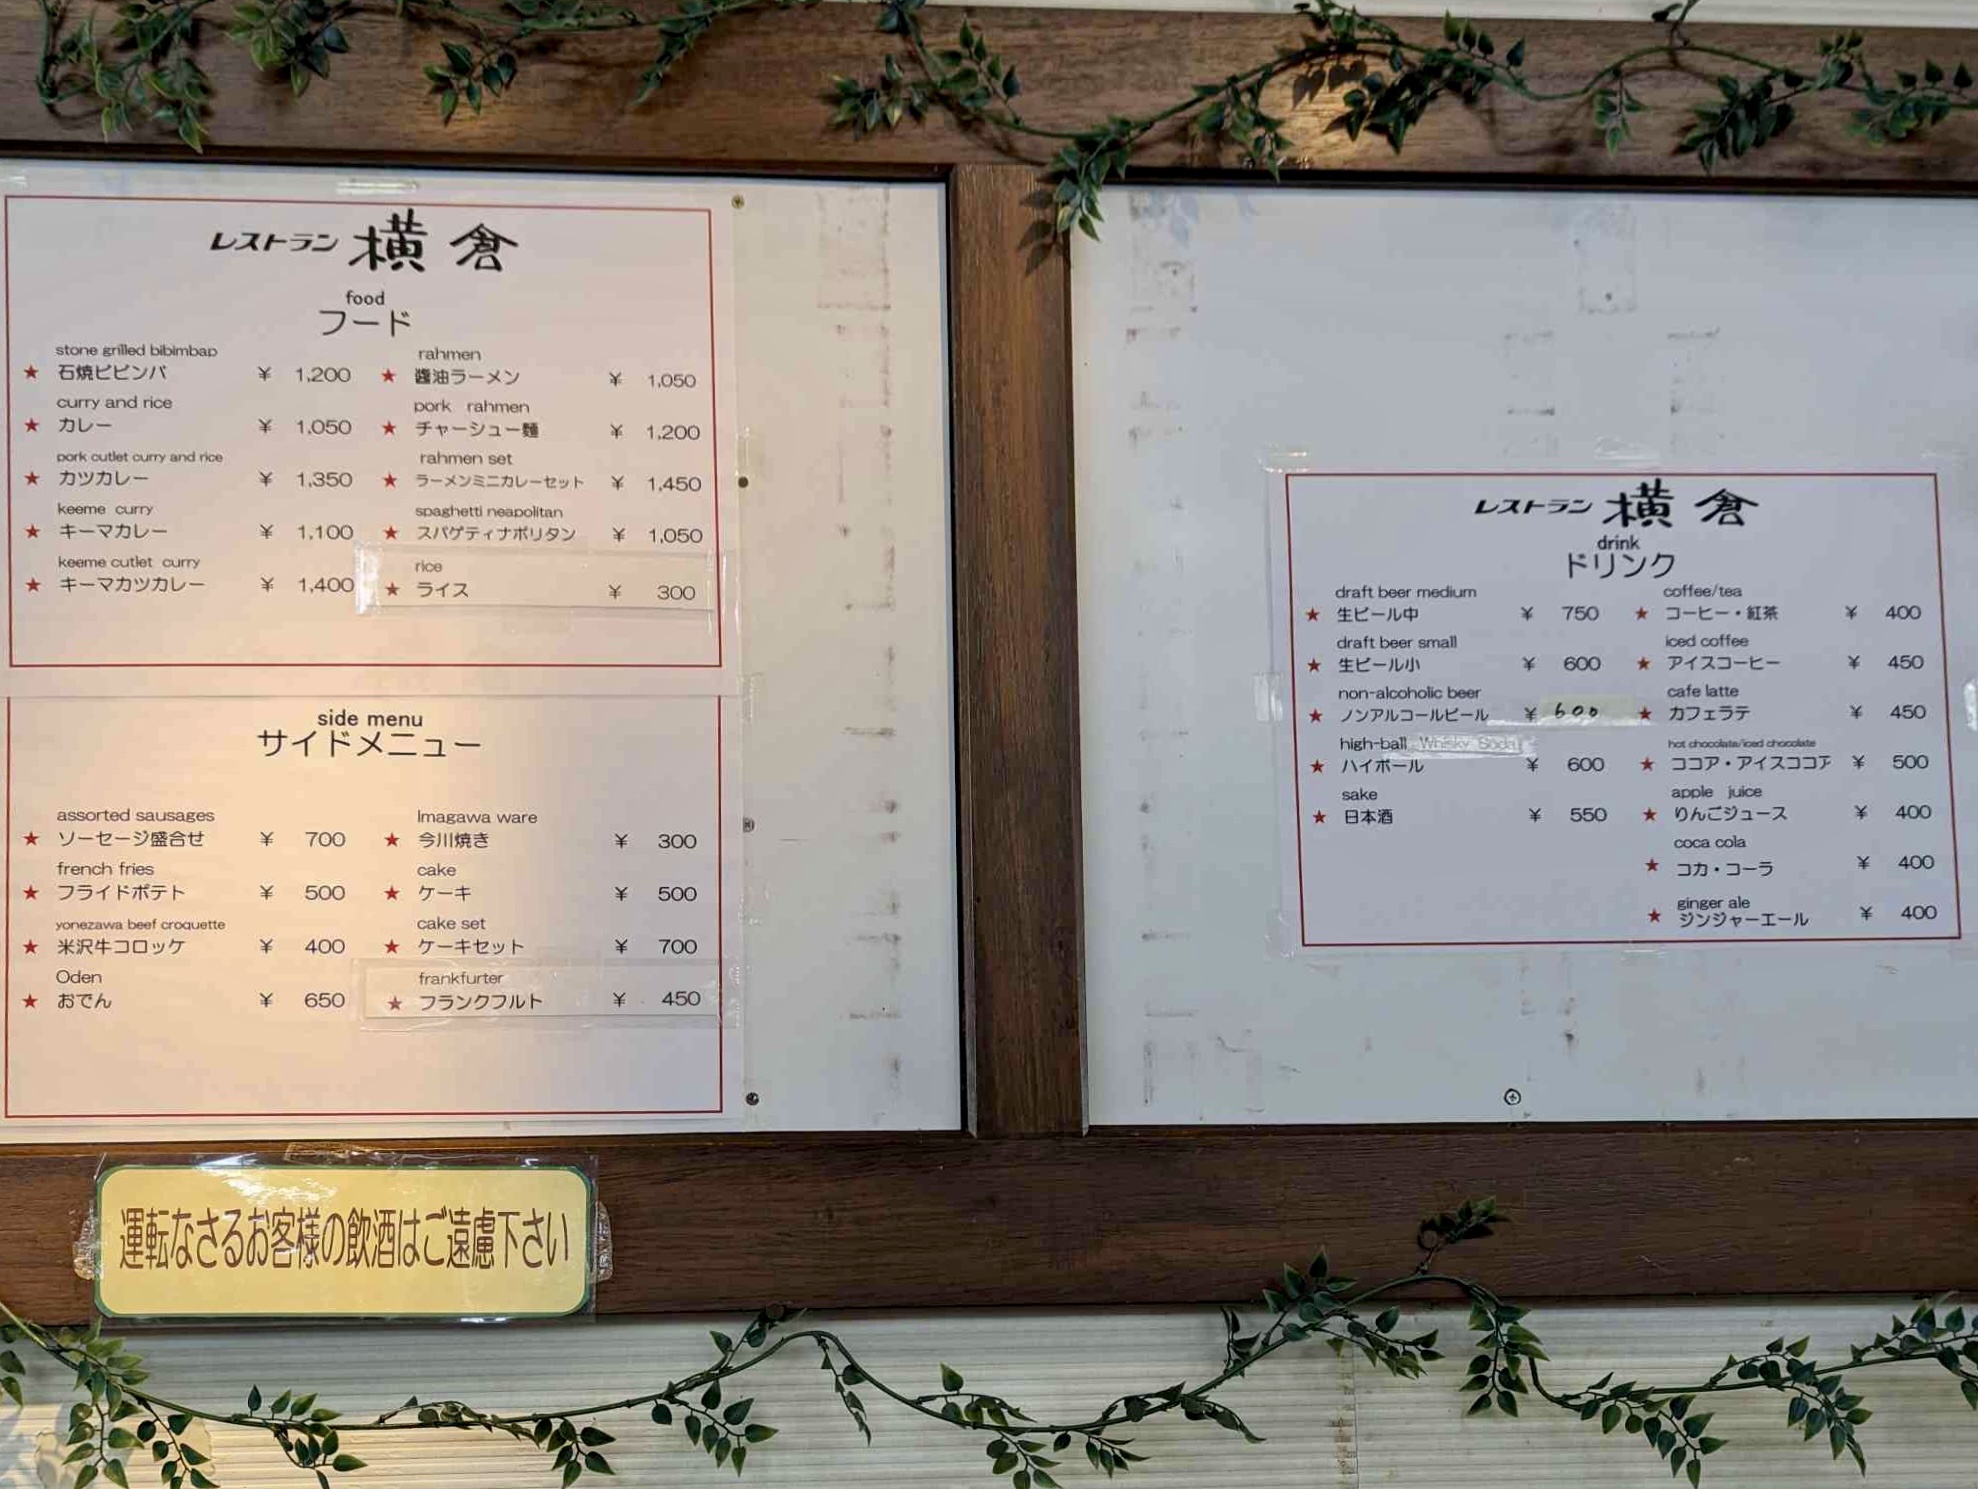 レストラン 横倉
food
フード
stone grilled bibimbap
★ 石焼ビビンバ ¥ 1,200
curry and rice
★ カレー ¥ 1,050
pork cutlet curry and rice
★ カツカレー ¥ 1,350
keeme curry
★ キーマカレー ¥ 1,100
keeme cutlet curry
★ キーマカツカレー ¥ 1,400
rahmen
★ 醤油ラーメン ¥ 1,050
pork rahmen
★ チャーシュー麺 ¥ 1,200
rahmen set
★ ラーメンミニカレーセット ¥ 1,450
spaghetti neapolitan
★ スパゲティナポリタン ¥ 1,050
rice
★ ライス ¥ 300
side menu
サイドメニュー
assorted sausages
★ ソーセージ盛合せ ¥ 700
french fries
★ フライドポテト ¥ 500
yonezawa beef croquette
★ 米沢牛コロッケ ¥ 400
Oden
★ おでん ¥ 650
Imagawa ware
★ 今川焼き ¥ 300
cake
★ ケーキ ¥ 500
cake set
★ ケーキセット ¥ 700
frankfurter
★ フランクフルト ¥ 450
運転なさるお客様の飲酒はご遠慮下さい
レストラン 横倉
drink
ドリンク
draft beer medium
★ 生ビール中 ¥ 750
draft beer small
★ 生ビール小 ¥ 600
non-alcoholic beer
★ ノンアルコールビール ¥ 600
high-ball Whisky Soda
★ ハイボール ¥ 600
sake
★ 日本酒 ¥ 550
coffee/tea
★ コーヒー・紅茶 ¥ 400
iced coffee
★ アイスコーヒー ¥ 450
cafe latte
★ カフェラテ ¥ 450
hot chocolate/iced chocolate
★ ココア・アイスココア ¥ 500
apple juice
★ りんごジュース ¥ 400
coca cola
★ コカ・コーラ ¥ 400
ginger ale
★ ジンジャーエール ¥ 400